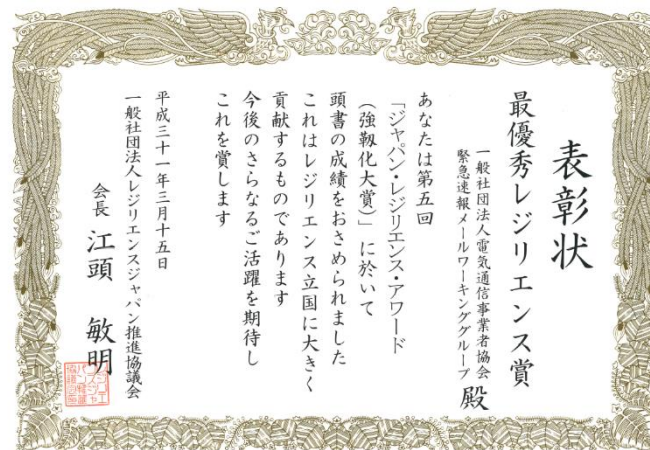 表彰状
最優秀レジリエンス賞
一般社団法人電気通信事業者協会
緊急速報メールワーキンググループ 殿
あなたは第五回
「ジャパン・レジリエンス・アワード
(強靱化大賞)」に於いて
頭書の成績をおさめられました
これはレジリエンス立国に大きく
貢献するものであります
今後のさらなるご活躍を期待し
これを賞します
平成三十一年三月十五日
一般社団法人レジリエンスジャパン推進協議会
会長 江頭 敏明